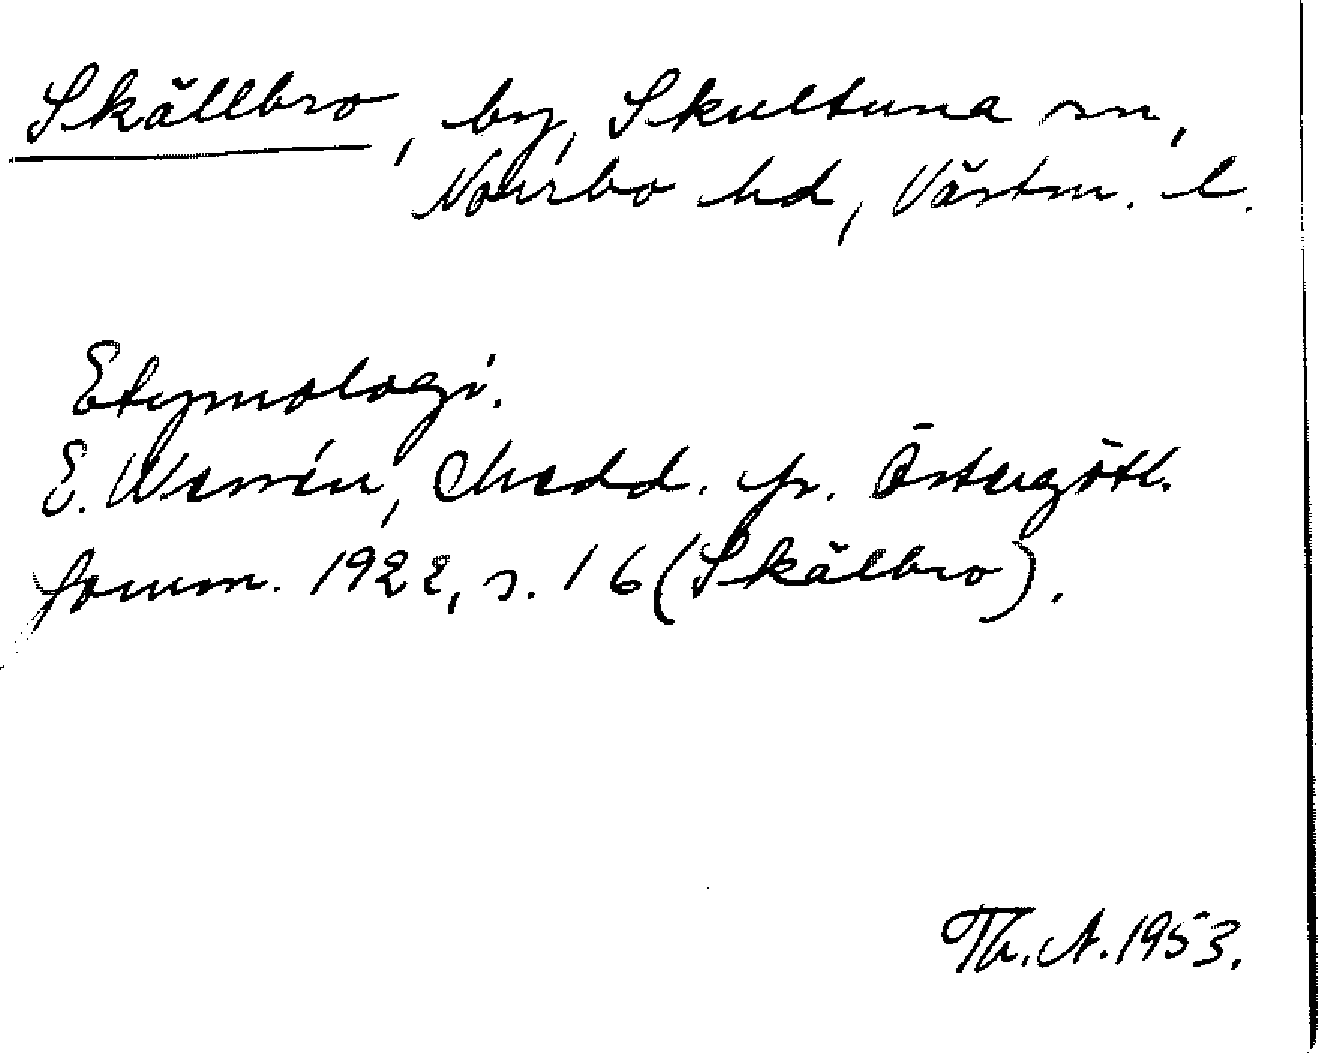 Skällbro, by, Skultuna sn,
Norrbo hd, Västm. l.
Etymologi.
E. Wessén, Medd. fr. Östergötl.
fornm. 1922, s. 16 (Skälbro).
Th. A. 1953.